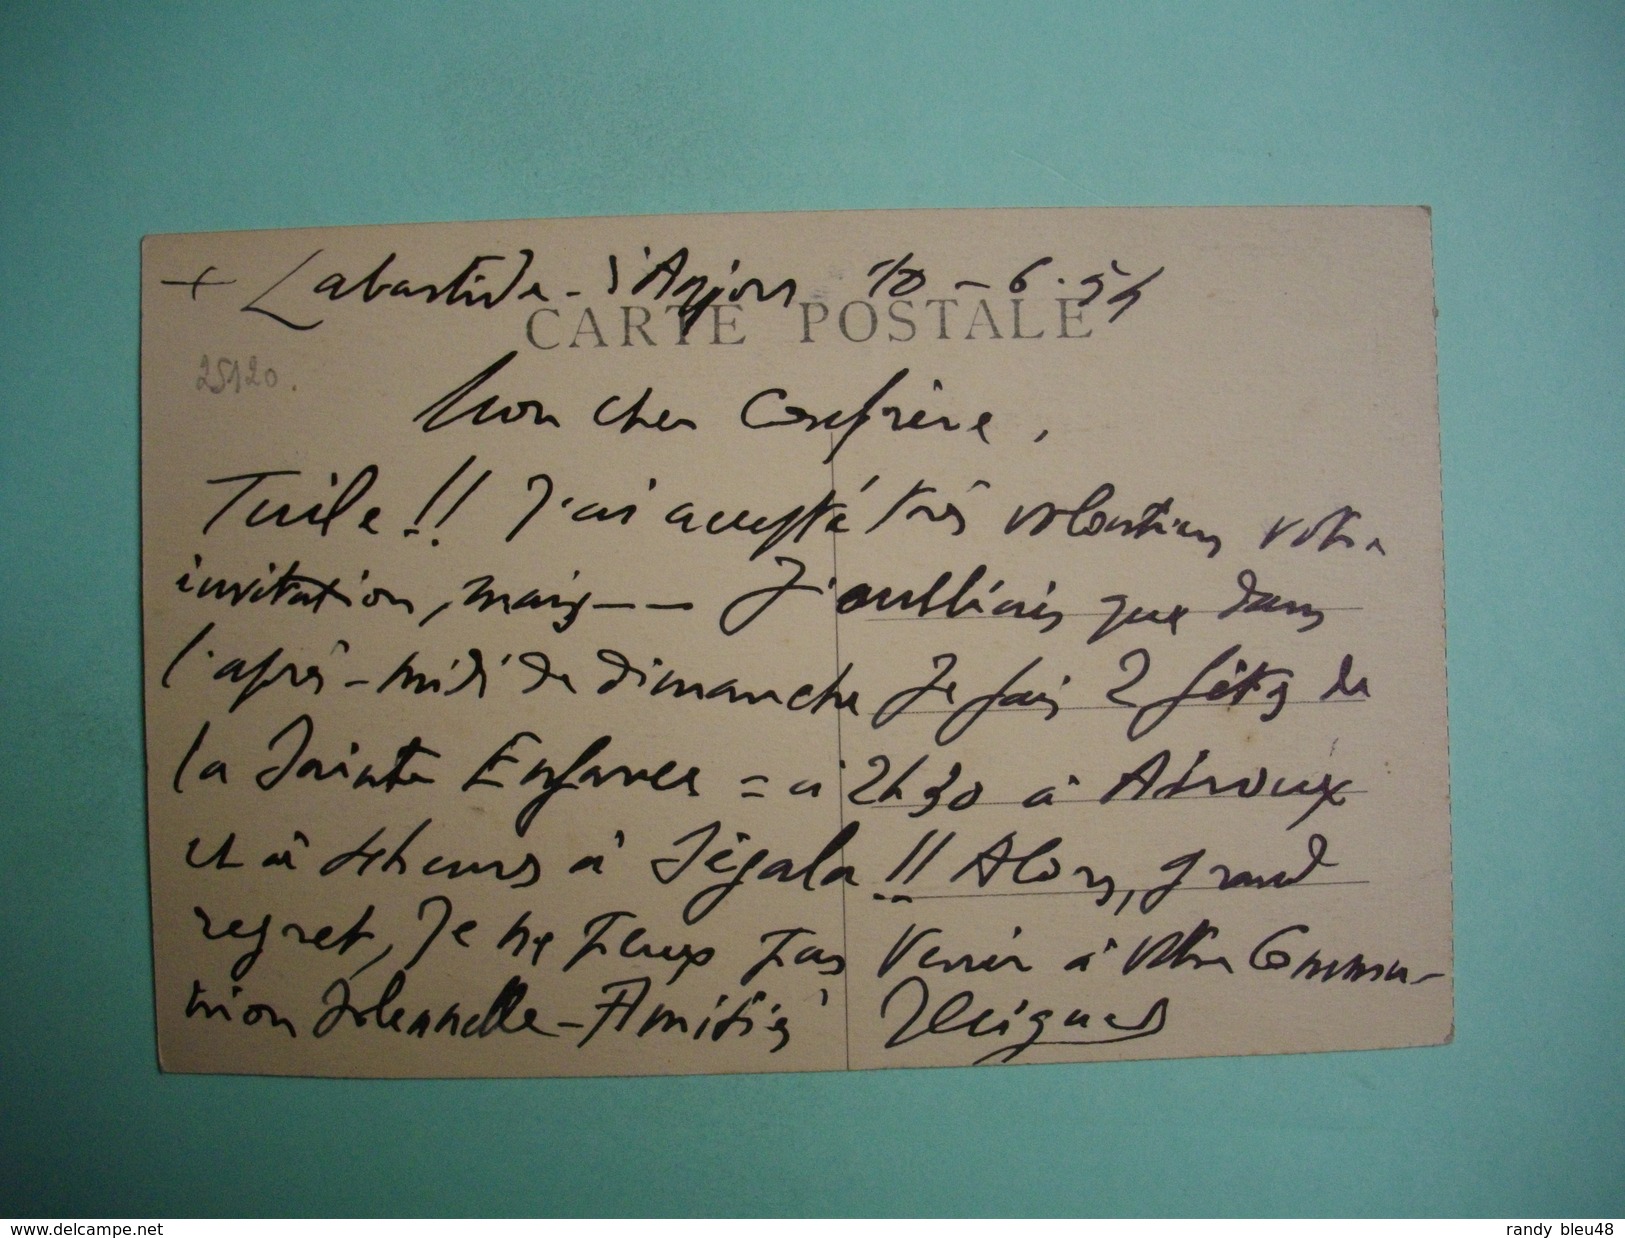 + Labastide-d'Anjou 10-6.54
CARTE POSTALE
25120.
Mon cher Confrère,
Tuile !! J'ai accepté très volontiers votre
invitation, mais-- J'oubliais que dans
l'après-midi de dimanche je fais 2 fêtes de
la Sainte Enfance = à 2h30 à Airoux
et à 4 heures à Ségala !! Alors, grand
regret, je ne peux pas venir à votre Commu-
nion Solennelle - Amitiés
www.delcampe.net
randy_bleu48